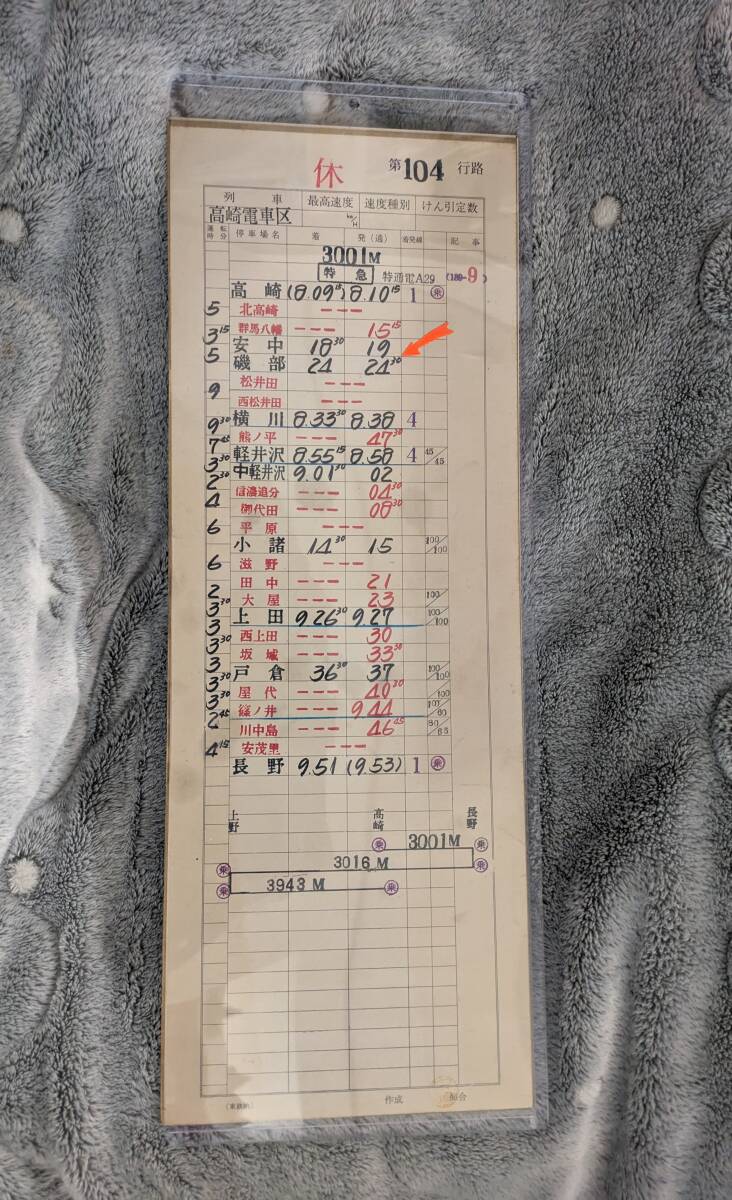 休 第104 行路
列車 最高速度 速度種別 けん引定数
高崎電車区 km/H
運転時分 停車場名 着 発(通) 着発線 記事
3001M
特急 特通電A29 (189-9)
高崎 (8.09¹⁵) 8.10¹⁵ 1 乗
5 北高崎 ---
群馬八幡 --- 15¹⁵
3¹⁵ 安中 18³⁰ 19
5 磯部 24 24³⁰
松井田 ---
9 西松井田 ---
横川 8.33³⁰ 8.38 4
9³⁰ 熊ノ平 --- 47³⁰
7⁴⁵ 軽井沢 8.55¹⁵ 8.58 4 45/45
3³⁰ 中軽井沢 9.01³⁰ 02
2³⁰ 信濃追分 --- 04³⁰
4 御代田 --- 08³⁰
平原 ---
6 小諸 14³⁰ 15 100/100
滋野 ---
6 田中 --- 21
2 大屋 --- 23 100/
3³⁰ 上田 9.26³⁰ 9.27 100/100
3 西上田 --- 30
3³⁰ 坂城 --- 33³⁰
3 戸倉 36³⁰ 37 100/100
3³⁰ 屋代 --- 40³⁰ /100
3³⁰ 篠ノ井 --- 9.44
2⁴⁵ 川中島 --- 46⁴⁵
安茂里 ---
4¹⁵ 長野 9.51 (9.53) 1 乗
上野 高崎 長野
乗 3001M 乗
乗 3016M 乗
乗 3943M 乗
(東鉄納) 作成 照合